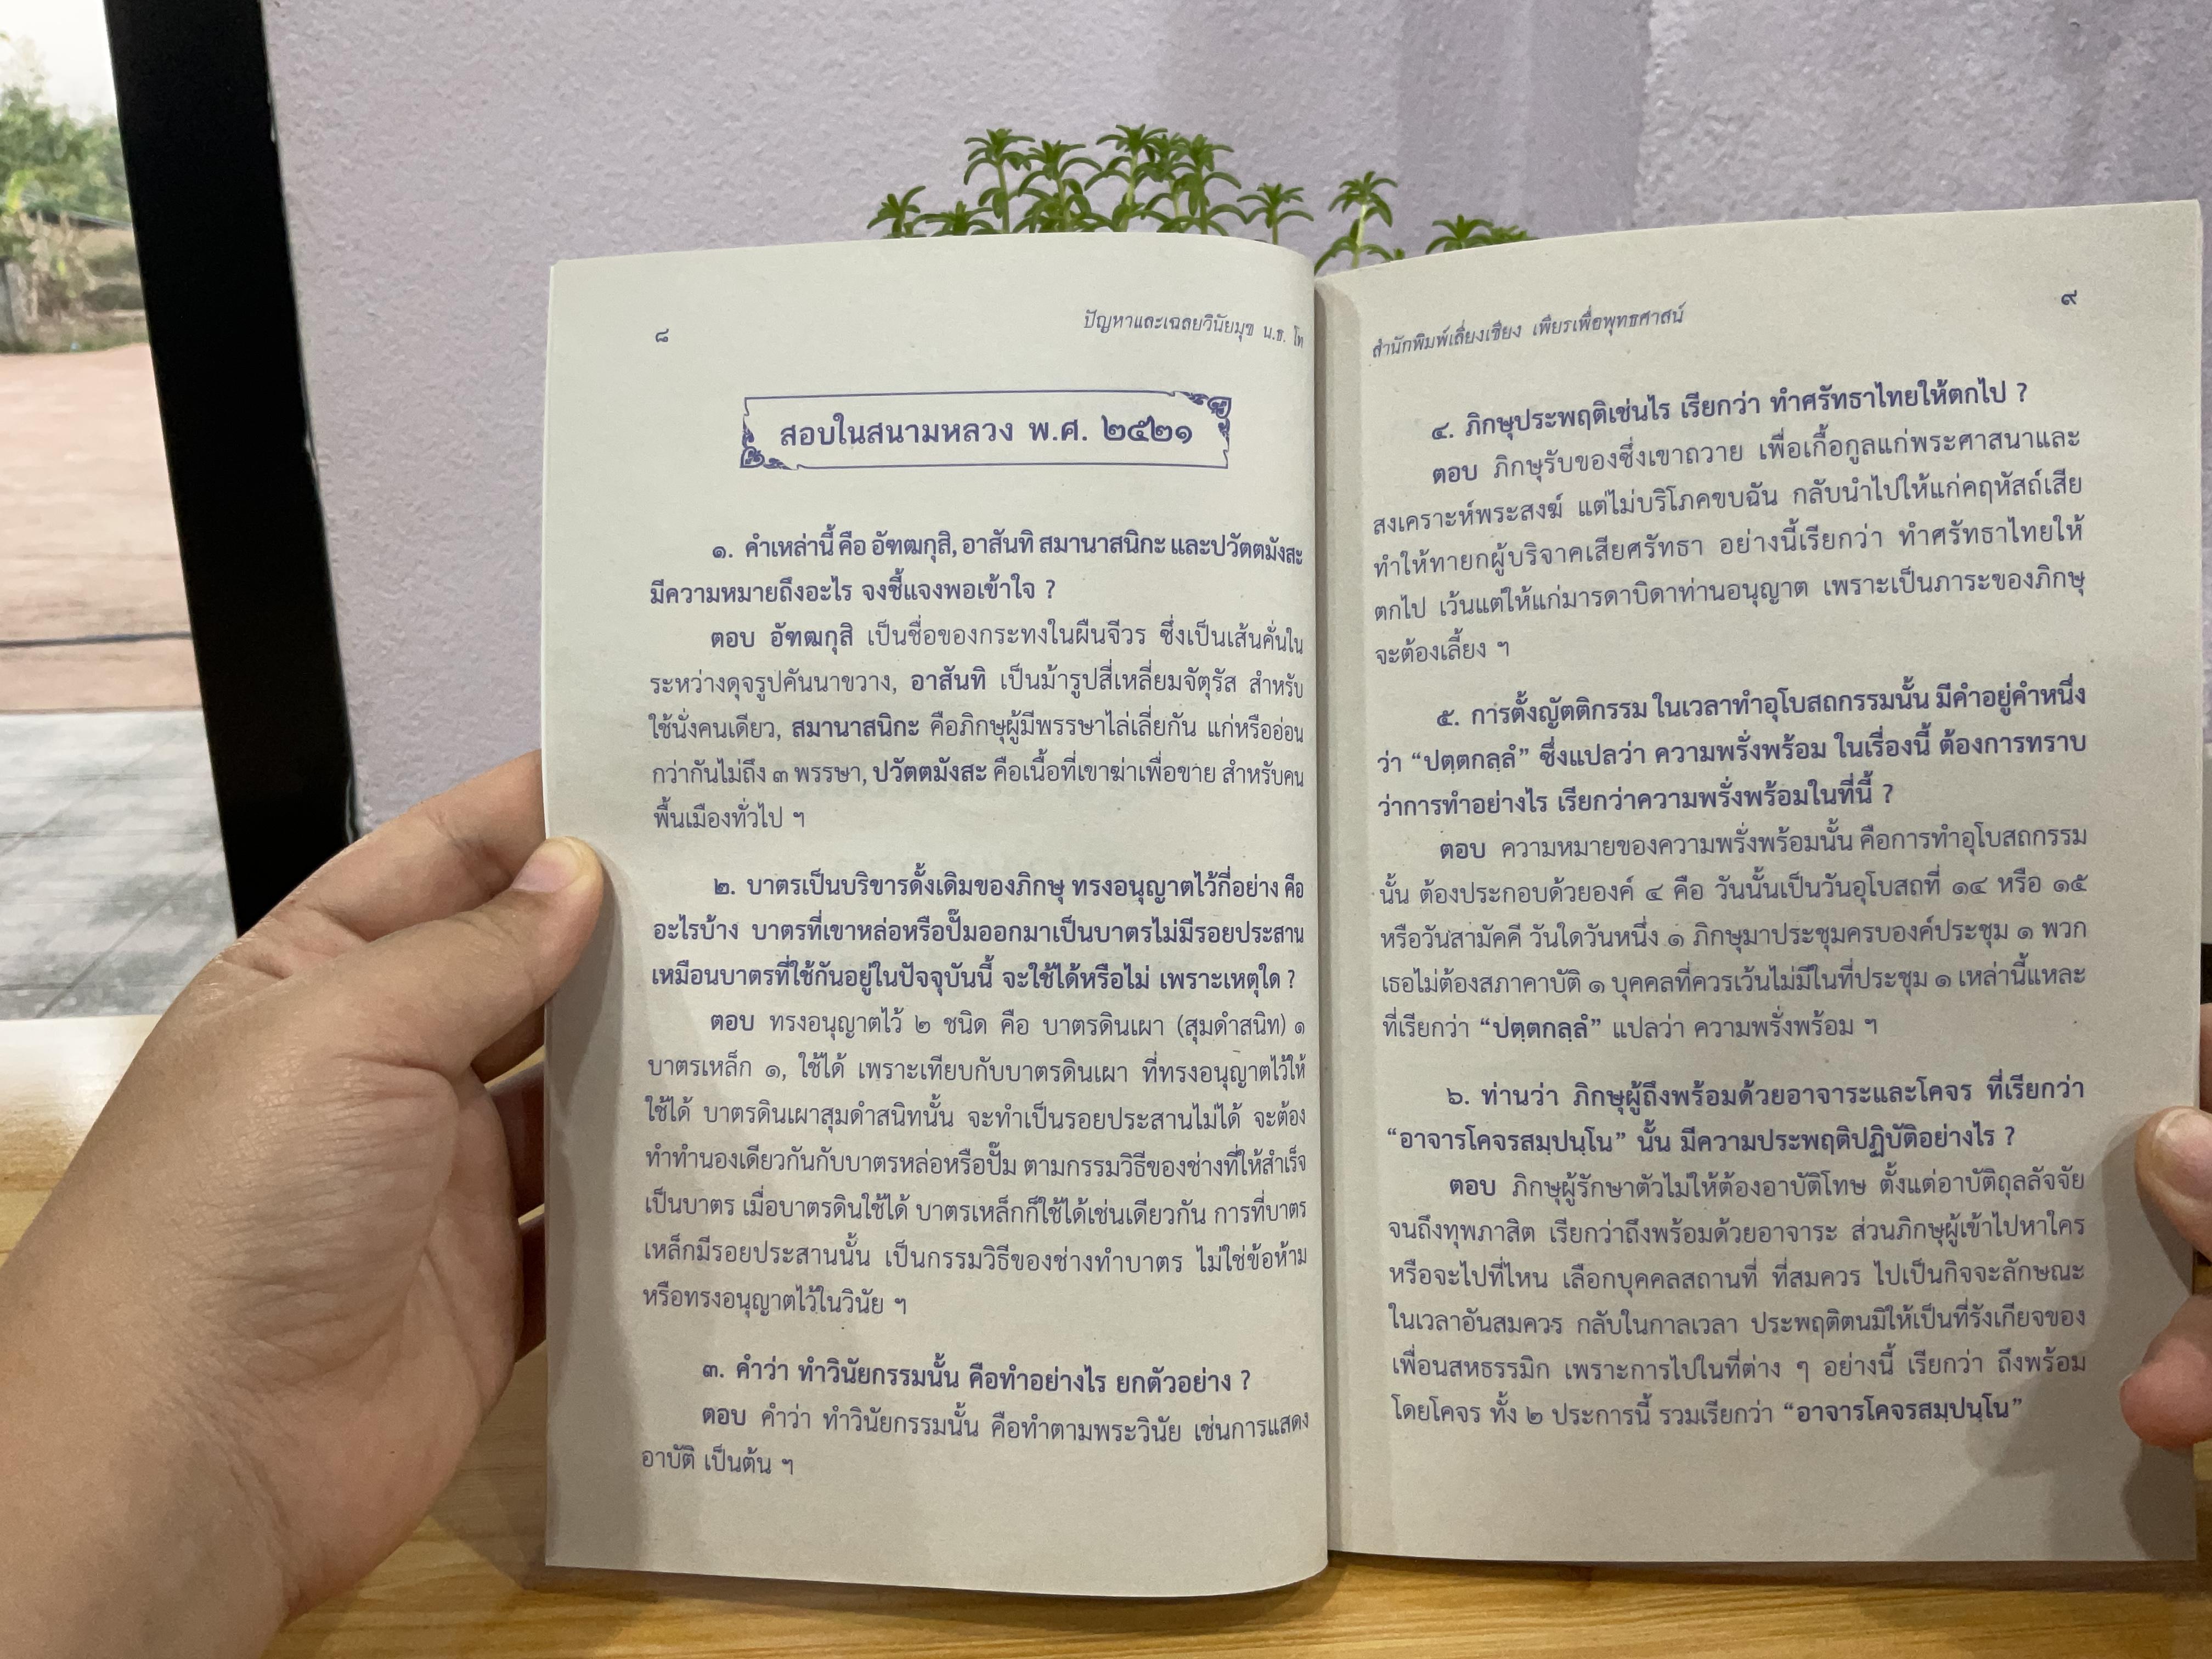 ๘
ปัญหาและเฉลยวินัยมุข น.ธ. โท
สอบในสนามหลวง พ.ศ. ๒๕๒๑
๑. คำเหล่านี้ คือ อัฑฒกุสิ, อาสันทิ สมานาสนิกะ และปวัตตมังสะ
มีความหมายถึงอะไร จงชี้แจงพอเข้าใจ ?
ตอบ อัฑฒกุสิ เป็นชื่อของกระทงในผืนจีวร ซึ่งเป็นเส้นคั่นใน
ระหว่างดุจรูปคันนาขวาง, อาสันทิ เป็นม้ารูปสี่เหลี่ยมจัตุรัส สำหรับ
ใช้นั่งคนเดียว, สมานาสนิกะ คือภิกษุผู้มีพรรษาไล่เลี่ยกัน แก่หรืออ่อน
กว่ากันไม่ถึง ๓ พรรษา, ปวัตตมังสะ คือเนื้อที่เขาฆ่าเพื่อขาย สำหรับคน
พื้นเมืองทั่วไป ฯ
๒. บาตรเป็นบริขารดั้งเดิมของภิกษุ ทรงอนุญาตไว้กี่อย่าง คือ
อะไรบ้าง บาตรที่เขาหล่อหรือปั๊มออกมาเป็นบาตรไม่มีรอยประสาน
เหมือนบาตรที่ใช้กันอยู่ในปัจจุบันนี้ จะใช้ได้หรือไม่ เพราะเหตุใด ?
ตอบ ทรงอนุญาตไว้ ๒ ชนิด คือ บาตรดินเผา (สุมดำสนิท) ๑
บาตรเหล็ก ๑, ใช้ได้ เพราะเทียบกับบาตรดินเผา ที่ทรงอนุญาตไว้ให้
ใช้ได้ บาตรดินเผาสุมดำสนิทนั้น จะทำเป็นรอยประสานไม่ได้ จะต้อง
ทำทำนองเดียวกันกับบาตรหล่อหรือปั๊ม ตามกรรมวิธีของช่างที่ให้สำเร็จ
เป็นบาตร เมื่อบาตรดินใช้ได้ บาตรเหล็กก็ใช้ได้เช่นเดียวกัน การที่บาตร
เหล็กมีรอยประสานนั้น เป็นกรรมวิธีของช่างทำบาตร ไม่ใช่ข้อห้าม
หรือทรงอนุญาตไว้ในวินัย ฯ
๓. คำว่า ทำวินัยกรรมนั้น คือทำอย่างไร ยกตัวอย่าง ?
ตอบ คำว่า ทำวินัยกรรมนั้น คือทำตามพระวินัย เช่นการแสดง
อาบัติ เป็นต้น ฯ
สำนักพิมพ์เลี่ยงเชียง เพียรเพื่อพุทธศาสน์
๙
๔. ภิกษุประพฤติเช่นไร เรียกว่า ทำศรัทธาไทยให้ตกไป ?
ตอบ ภิกษุรับของซึ่งเขาถวาย เพื่อเกื้อกูลแก่พระศาสนาและ
สงเคราะห์พระสงฆ์ แต่ไม่บริโภคขบฉัน กลับนำไปให้แก่คฤหัสถ์เสีย
ทำให้ทายกผู้บริจาคเสียศรัทธา อย่างนี้เรียกว่า ทำศรัทธาไทยให้
ตกไป เว้นแต่ให้แก่มารดาบิดาท่านอนุญาต เพราะเป็นภาระของภิกษุ
จะต้องเลี้ยง ฯ
๕. การตั้งญัตติกรรม ในเวลาทำอุโบสถกรรมนั้น มีคำอยู่คำหนึ่ง
ว่า “ปตฺตกลฺลํ” ซึ่งแปลว่า ความพรั่งพร้อม ในเรื่องนี้ ต้องการทราบ
ว่าการทำอย่างไร เรียกว่าความพรั่งพร้อมในที่นี้ ?
ตอบ ความหมายของความพรั่งพร้อมนั้น คือการทำอุโบสถกรรม
นั้น ต้องประกอบด้วยองค์ ๔ คือ วันนั้นเป็นวันอุโบสถที่ ๑๔ หรือ ๑๕
หรือวันสามัคคี วันใดวันหนึ่ง ๑ ภิกษุมาประชุมครบองค์ประชุม ๑ พวก
เธอไม่ต้องสภาคาบัติ ๑ บุคคลที่ควรเว้นไม่มีในที่ประชุม ๑ เหล่านี้แหละ
ที่เรียกว่า “ปตฺตกลฺลํ” แปลว่า ความพรั่งพร้อม ฯ
๖. ท่านว่า ภิกษุผู้ถึงพร้อมด้วยอาจาระและโคจร ที่เรียกว่า
“อาจารโคจรสมฺปนฺโน” นั้น มีความประพฤติปฏิบัติอย่างไร ?
ตอบ ภิกษุผู้รักษาตัวไม่ให้ต้องอาบัติโทษ ตั้งแต่อาบัติถุลลัจจัย
จนถึงทุพภาสิต เรียกว่าถึงพร้อมด้วยอาจาระ ส่วนภิกษุผู้เข้าไปหาใคร
หรือจะไปที่ไหน เลือกบุคคลสถานที่ ที่สมควร ไปเป็นกิจจะลักษณะ
ในเวลาอันสมควร กลับในกาลเวลา ประพฤติตนมิให้เป็นที่รังเกียจของ
เพื่อนสหธรรมิก เพราะการไปในที่ต่าง ๆ อย่างนี้ เรียกว่า ถึงพร้อม
โดยโคจร ทั้ง ๒ ประการนี้ รวมเรียกว่า “อาจารโคจรสมฺปนฺโน”